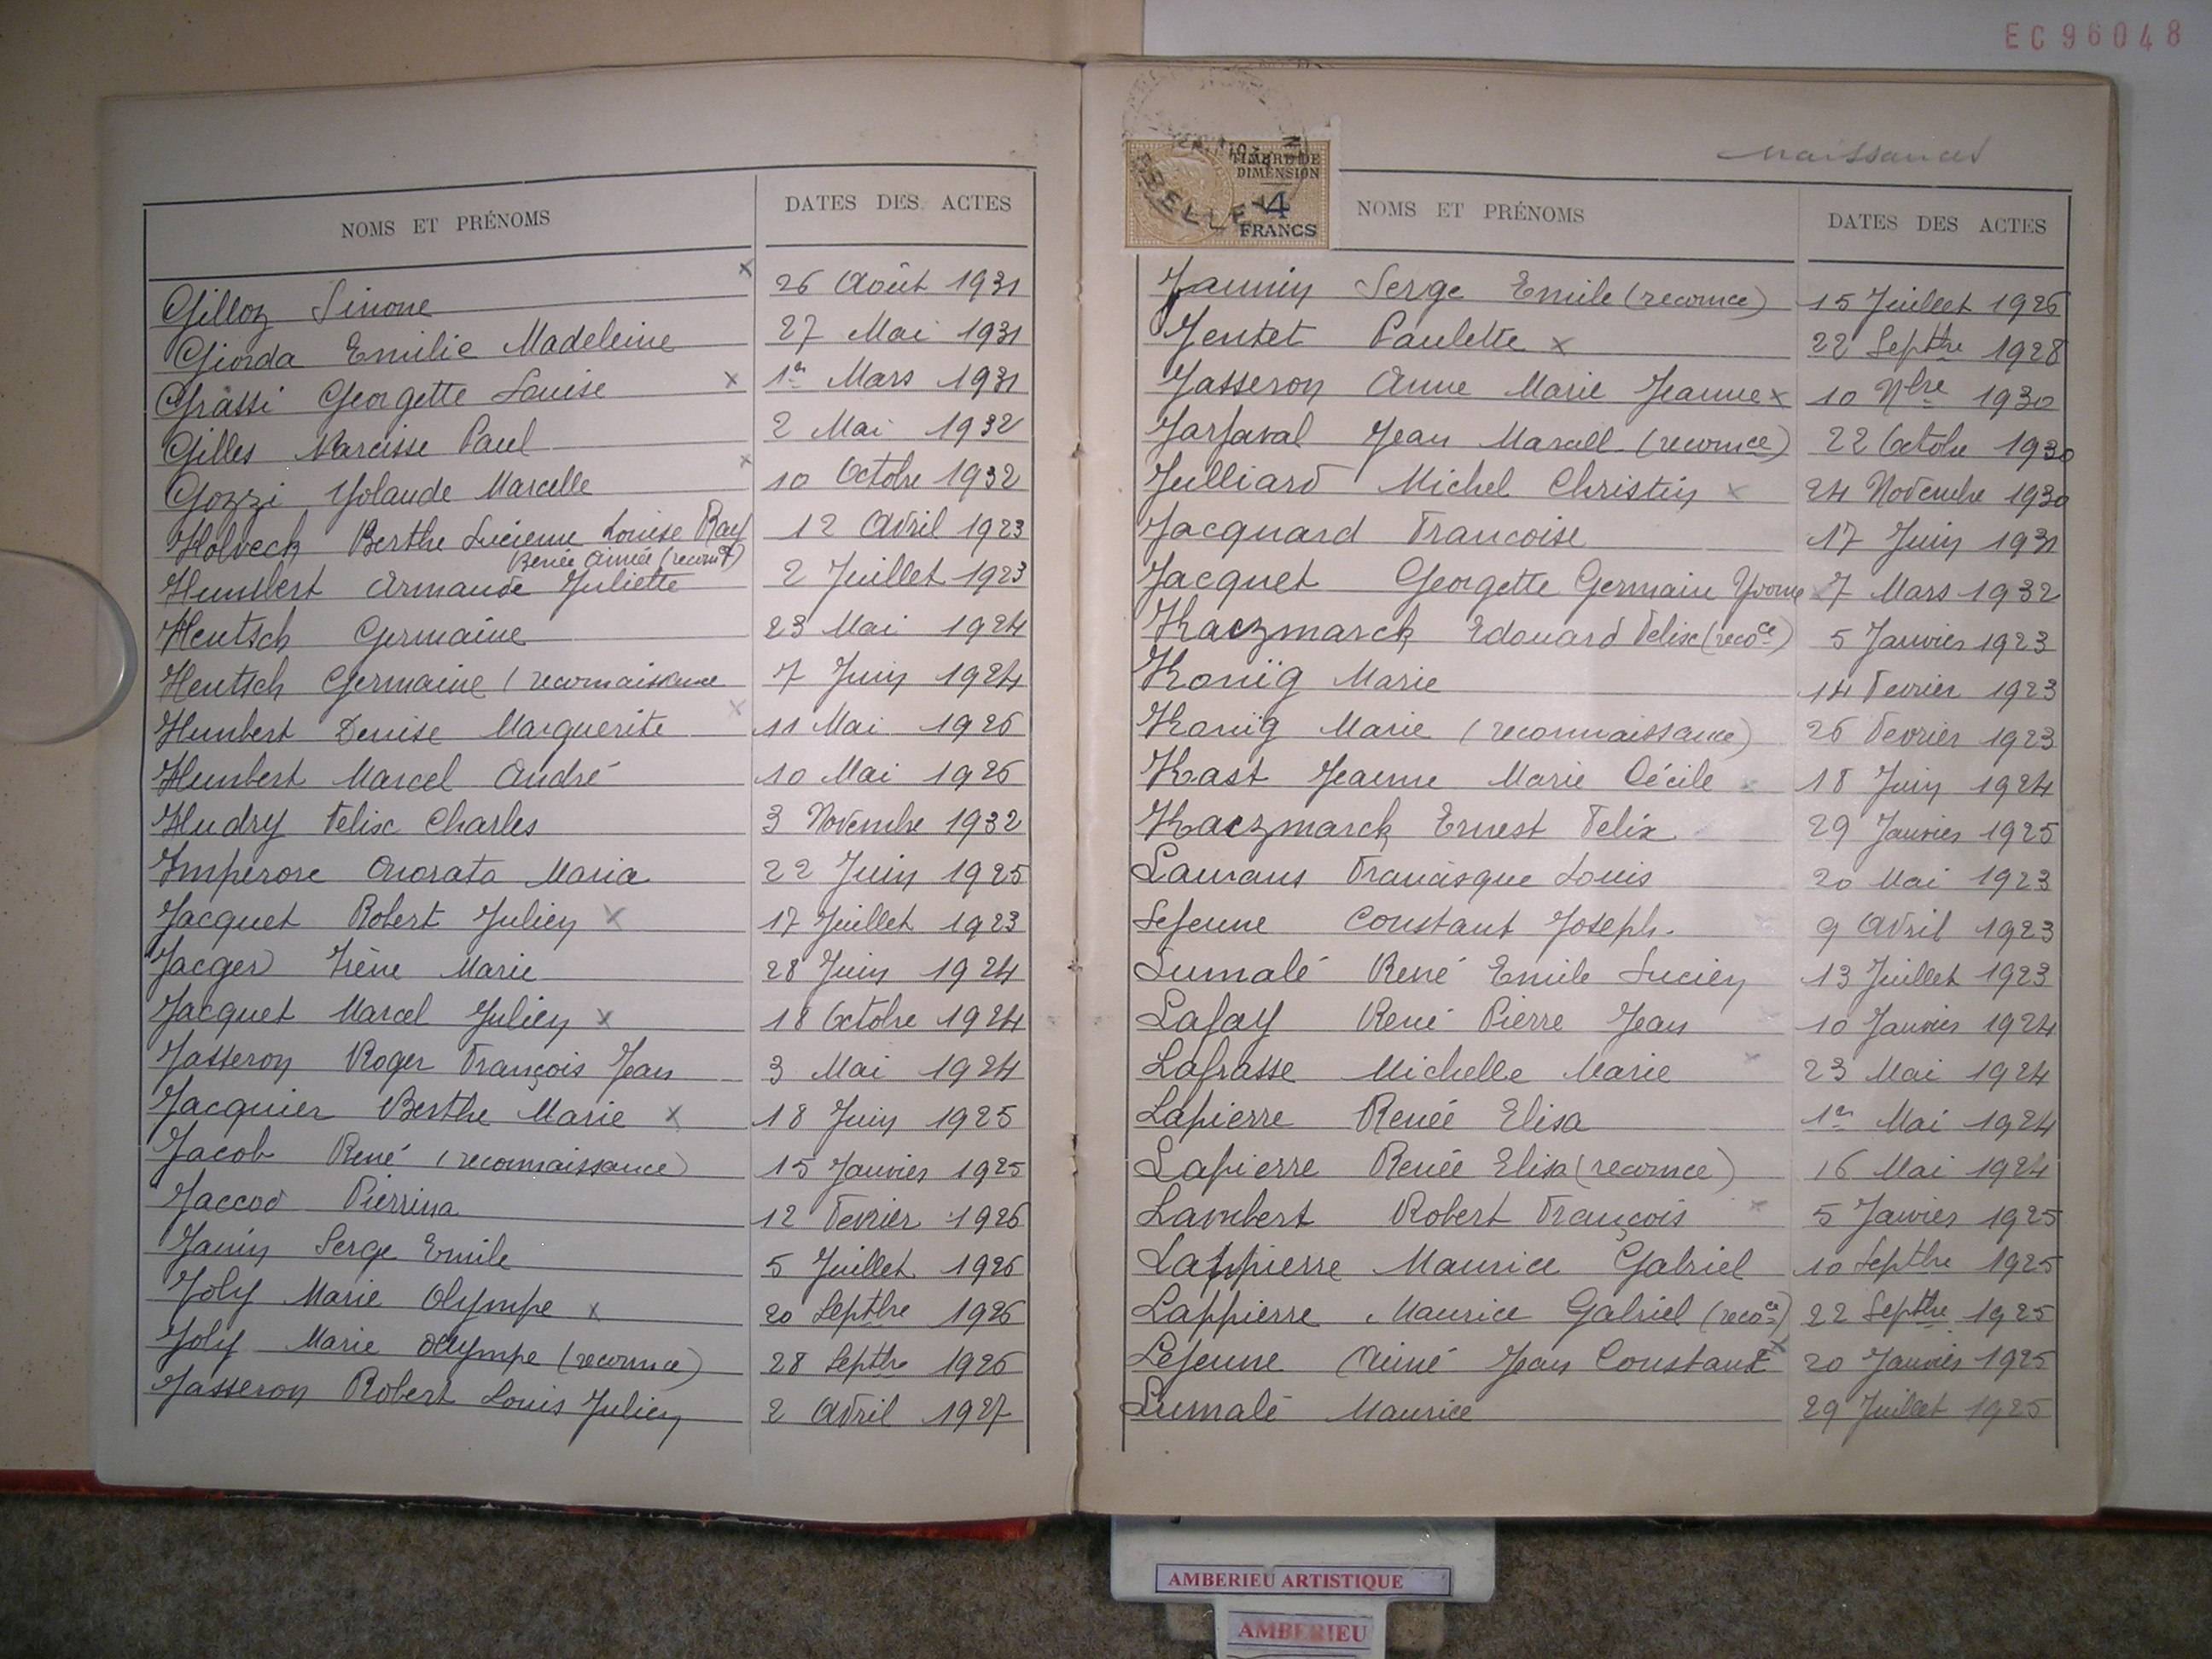 EC96048
NOMS ET PRÉNOMS DATES DES ACTES
Gilloz Simone x 26 Août 1931
Giorda Emilie Madeleine 27 Mai 1931
Grassi Georgette Louise x 1er Mars 1931
Gilles Narcisse Paul 2 Mai 1932
Gozzi Yolande Marcelle x 10 Octobre 1932
Holveck Berthe Lucienne Louise Ray 12 Avril 1923
Renée Aimée
Humbert Armande Juliette 2 Juillet 1923
Hentsch Germaine 23 Mai 1924
Hentsch Germaine (reconnaissance 7 Juin 1924
Humbert Denise Marguerite x 11 Mai 1926
Humbert Marcel André 10 Mai 1926
Hudry Felix Charles 3 Novembre 1932
Imperore Onorata Maria 22 Juin 1925
Jacquet Robert Julien x 17 Juillet 1923
Jacger Irène Marie 28 Juin 1924
Jacquet Marcel Julien x 18 Octobre 1924
Jasseron Roger François Jean 3 Mai 1924
Jacquier Berthe Marie x 18 Juin 1925
Jacob René (reconnaissance) 15 Janvier 1925
Jaccod Pierrina 12 Fevrier 1926
Janin Serge Emile 5 Juillet 1926
Joly Marie Olympe x 20 Septbre 1926
Joly Marie Olympe (reconnce) 28 Septbre 1926
Jasseron Robert Louis Julien 2 Avril 1927
Naissances
TIMBRE DE
DIMENSION
4
FRANCS
NOMS ET PRÉNOMS DATES DES ACTES
Jannin Serge Emile (reconnce) 15 Juillet 1926
Jentet Paulette x 22 Septbre 1928
Jasseron Anne Marie Jeanne x 10 Nbre 1930
Jarjaval Jean Marcell (reconnce) 22 Octobre 1930
Julliard Michel Christin x 24 Novembre 1930
Jacquard Francoise 17 Juin 1931
Jacquet Georgette Germaine Yvonne x 7 Mars 1932
Kaczmarck Edouard Felix (recoce) 5 Janvier 1923
Konïg Marie 14 Fevrier 1923
Konïg Marie (reconnaissance) 26 Fevrier 1923
Kast Jeanne Marie Cécile x 18 Juin 1924
Kaczmarck Ernest Felix 29 Janvier 1925
Laurans Francisque Louis 20 Mai 1923
Lejeune Constant Joseph. 9 Avril 1923
Lumalé René Emile Lucien 13 Juillet 1923
Lafay René Pierre Jean 10 Janvier 1924
Lafrasse Michelle Marie x 23 Mai 1924
Lapierre Renée Elisa 1er Mai 1924
Lapierre Renée Elisa (reconnce) 16 Mai 1924
Lambert Robert François x 5 Janvier 1925
Lappierre Maurice Gabriel 10 Septbre 1925
Lappierre Maurice Gabriel (recoce) 22 Septbre 1925
Lejeune Aimé Jean Constant x 20 Janvier 1925
Lumalé Maurice 29 Juillet 1925
AMBERIEU ARTISTIQUE
AMBERIEU